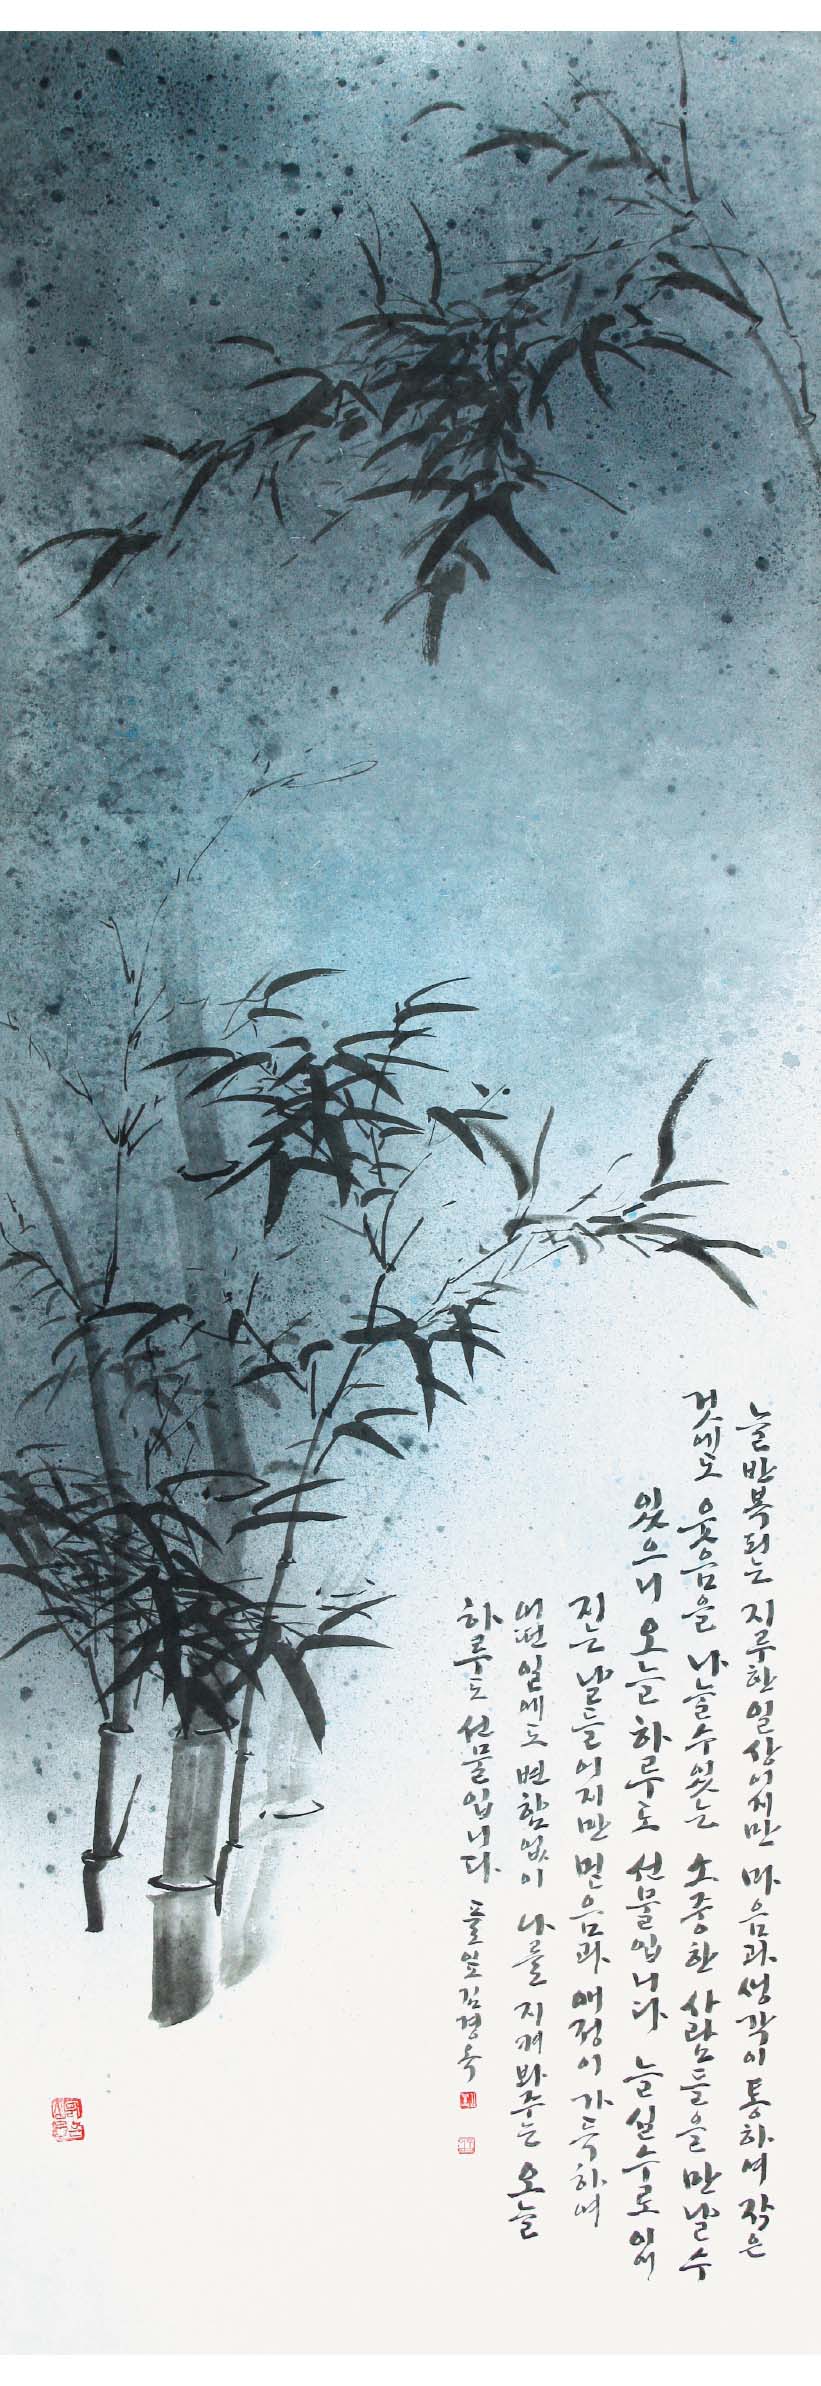 늘 반복되는 지루한 일상이지만 마음과 생각이 통하여 작은
것에도 웃음을 나눌수있는 소중한 사람들을 만날 수
있으니 오늘 하루도 선물입니다 늘 실수로 이어
지는 날들이지만 믿음과 애정이 가득하여
어떤 일에도 변함없이 나를 지켜봐주는 오늘
하루도 선물입니다 풀잎 김경옥